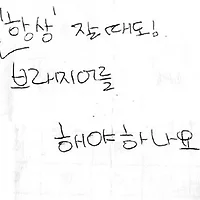 '항상' 잘때도!
브래지어를
해야하나요